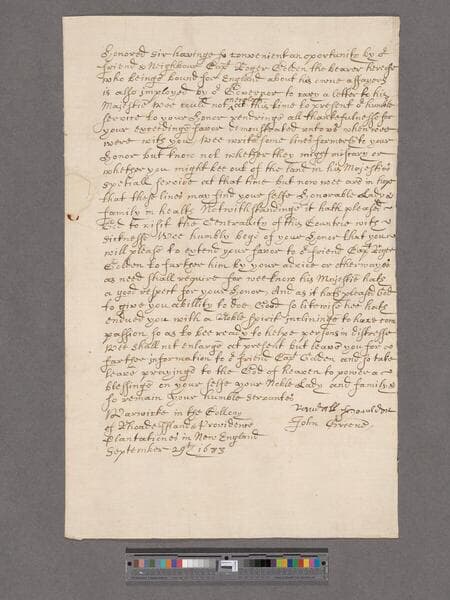 Honored Sir having so convenient an oportunity by oʳ
friend & Neighbour Capᵗ Roger Golden the bearer hereof
who beinge bound for England about his owne affayers
is also imployed by oʳ Governor to cary a letter to his
Majestie Wee could not at this time to present oʳ humble
service to your Honor rendringe all thankefulness for
your exceedinge favor demonstrated unto us when wee
were with you, Wee writt some lines formerly to your
Honor but know not whether they might miscary or
whether you might bee out of the land in his Majesties
speciall service at that time but now wee are in hope
that these lines may find your selfe Honorable Lady &
family in health Notwithstandinge it hath pleased
God to visit the Generallity of this Countrie with
sicknesse Wee humbly bege of your Honor that you
will please to extend your favor to oʳ friend Capᵗ Roger
Golden to farther him by your advice or otherwayes
as need shall require for wee know his Majestie hath
a good respect for your Honor, And as it hath pleased God
to give you ability to doe Good so likewise hee hath
endued you with a Noble Spirit inclininge to have com
passion so as to bee ready to helpe persons in distresse
Wee shall not enlarge at present but leave you for
farther information to oʳ friend Capᵗ Golden and so take
leave prayinge to the God of heaven to power a
blessinge on your selfe your Noble Lady and family &
so remain your humble servantes
Warwicke in the Collony
of Rhoade Island & Providence
Plantationes in New England
September 29ᵗʰ 1683
Randall Houlden
John Greene